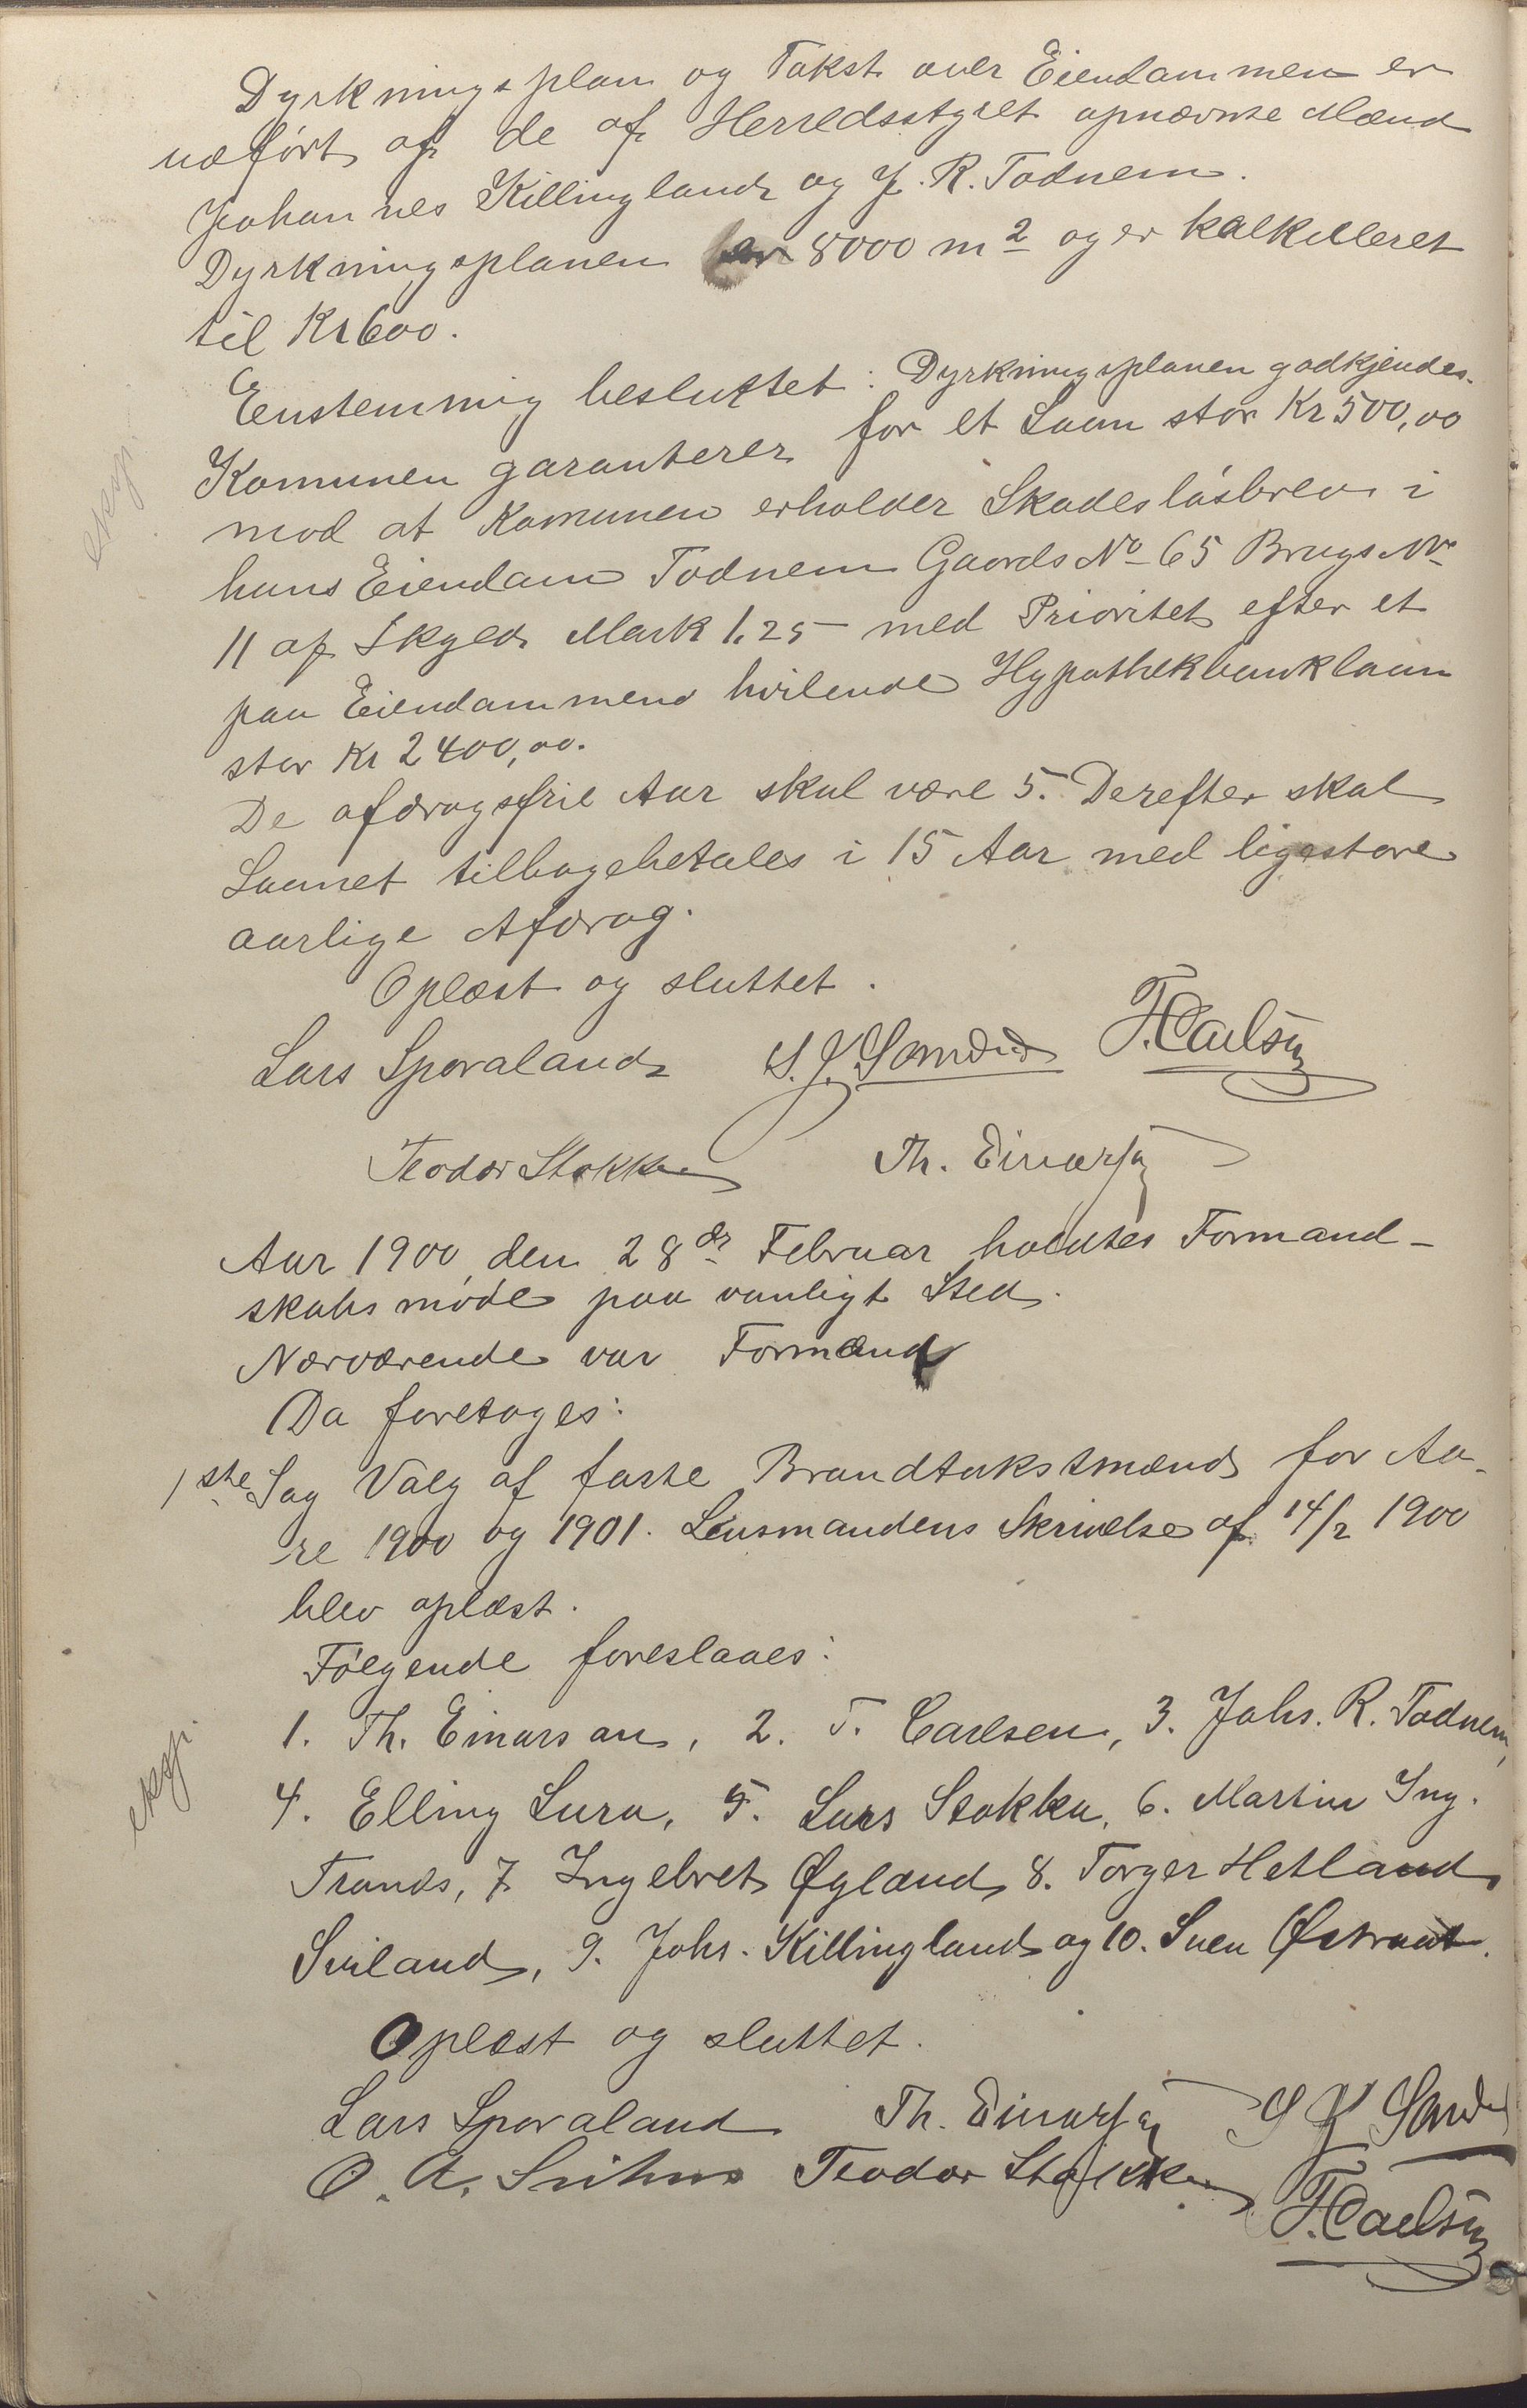 Dyrkningsplan og Takst over Eiendommen er
udført af de af Herredsstyret opnævnte Mænd
Johannes Killingland og J. R. Todnem.
Dyrkningsplanen er 8000 m2 og er kalkulleret
til Kr 600.
Enstemmig besluttet: Dyrkningsplanen godkjendes.
Komunen garanterer for et Laan stor Kr 500,00
mod at Komunen erholder Skadesløsbrev i
hans Eiendom Todnem Gaards No 65 Brugs No
11 af Skyld Mark 1.25 med Prioritet efter et
paa Eiendommen hvilende Hypothekbanklaan
stor Kr 2400,00.
De afdragsfrie Aar skal være 5. Derefter skal
Laanet tilbagebetales i 15 Aar med ligestore
aarlige Afdrag.
Oplæst og sluttet.
Lars Sporaland S. J. T. Carlsen
Teodor Stokka Th. Einarsen
Aar 1900 den 28de Februar holdtes Formand-
skabsmøde paa vanligt Sted.
Nærværende var Formænd
Da foretoges:
1ste Sag Valg af faste Brandtakstmænd for Aa-
re 1900 og 1901. Lensmandens Skrivelse af 14/2 1900
blev oplæst.
Følgende foreslaaes:
1. Th. Einarsen, 2. T. Carlsen, 3. Johs. R. Todnem,
4. Elling Lura, 5. Lars Stokka, 6. Martin Ing.
Tronds, 7. Ingebret Øgland, 8. Torger Hetland
Sviland, 9. Johs. Killingland og 10. Sven Østraat.
Oplæst og sluttet.
Lars Sporaland Th. Einarsen S J
O. A. Teodor Stokka T. Carlsen
eksp.
eksp.